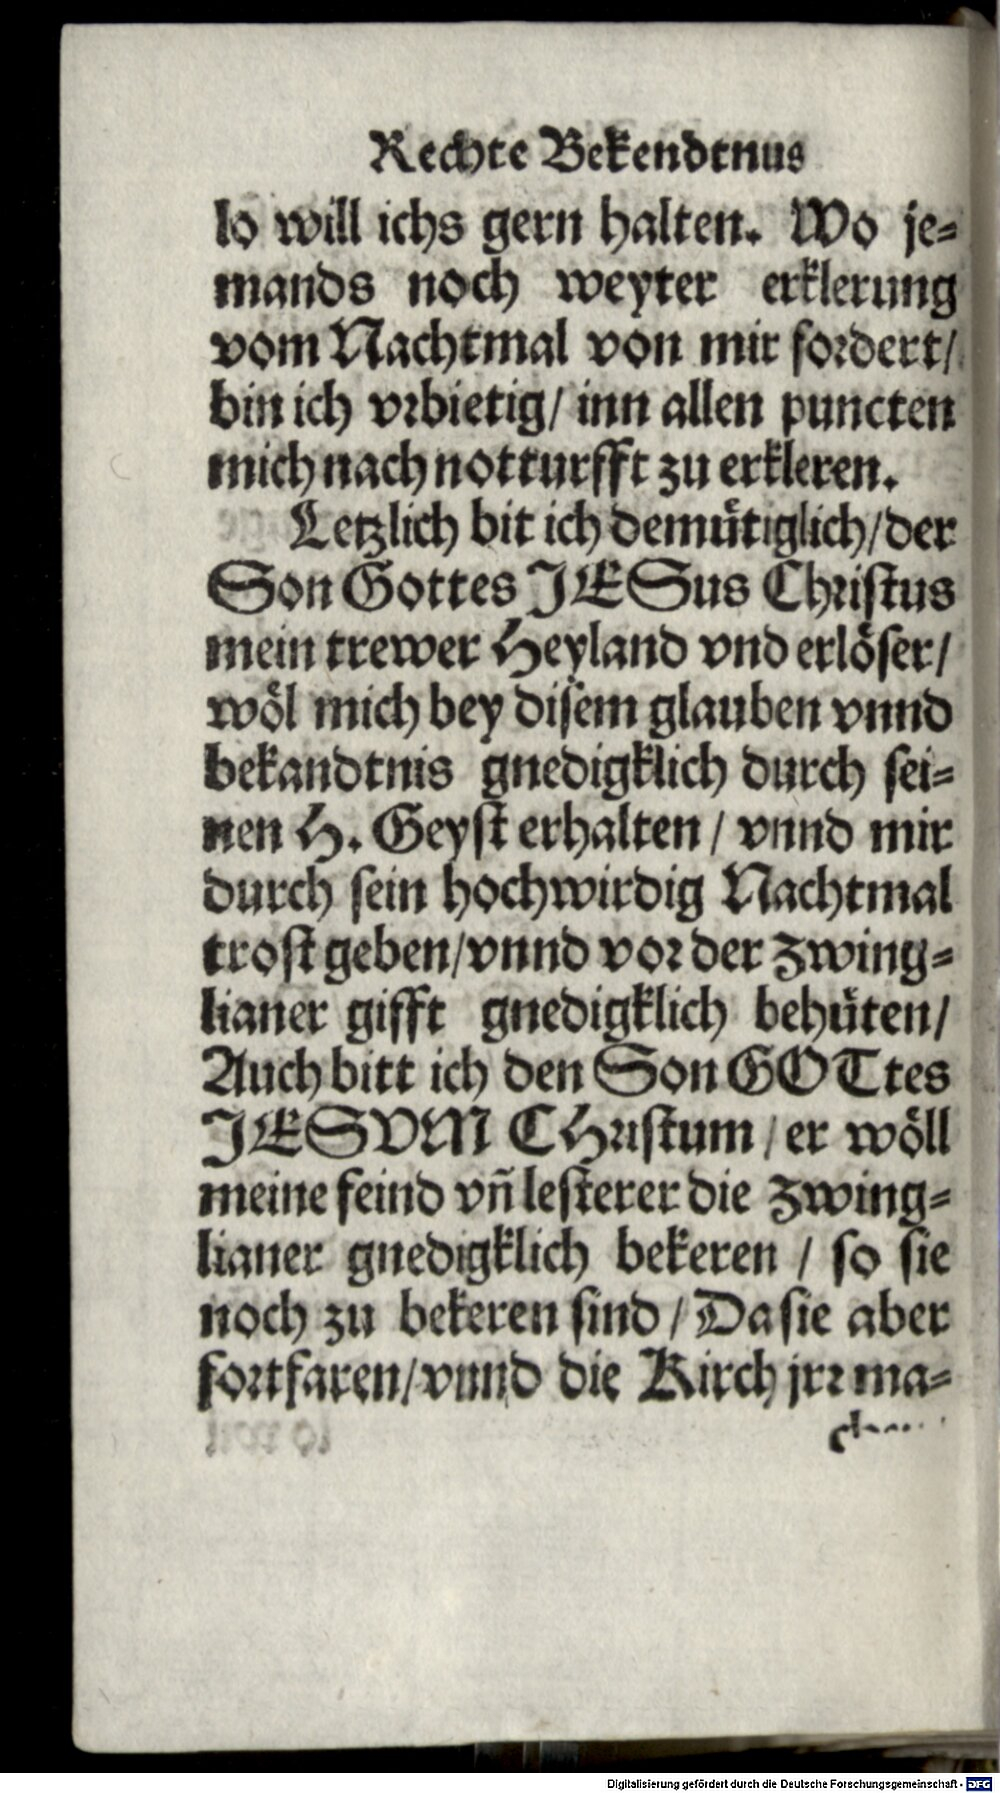 Rechte Bekendtnus
so will ichs gern halten. Wo je-
mands noch weyter erklerung
vom Nachtmal von mir fordert/
bin ich vrbietig/ inn allen puncten
mich nach notturfft zu erkleren.
Letzlich bit ich demuͤtiglich/ der
Son Gottes JESus Christus
mein trewer Heyland vnd erloͤser/
woͤl mich bey disem glauben vnnd
bekandtnis gnedigklich durch sei-
nen H. Geyst erhalten / vnnd mir
durch sein hochwirdig Nachtmal
trost geben/ vnnd vor der Zwing-
lianer gifft gnedigklich behuͤten/
Auch bitt ich den Son GOTtes
JESVM CHristum / er woͤll
meine feind vñ lesterer die Zwing-
lianer gnedigklich bekeren / so sie
noch zu bekeren sind / Da sie aber
fortfaren/ vnnd die Kirch jrr ma-
Digitalisierung gefördert durch die Deutsche Forschungsgemeinschaft - DFG